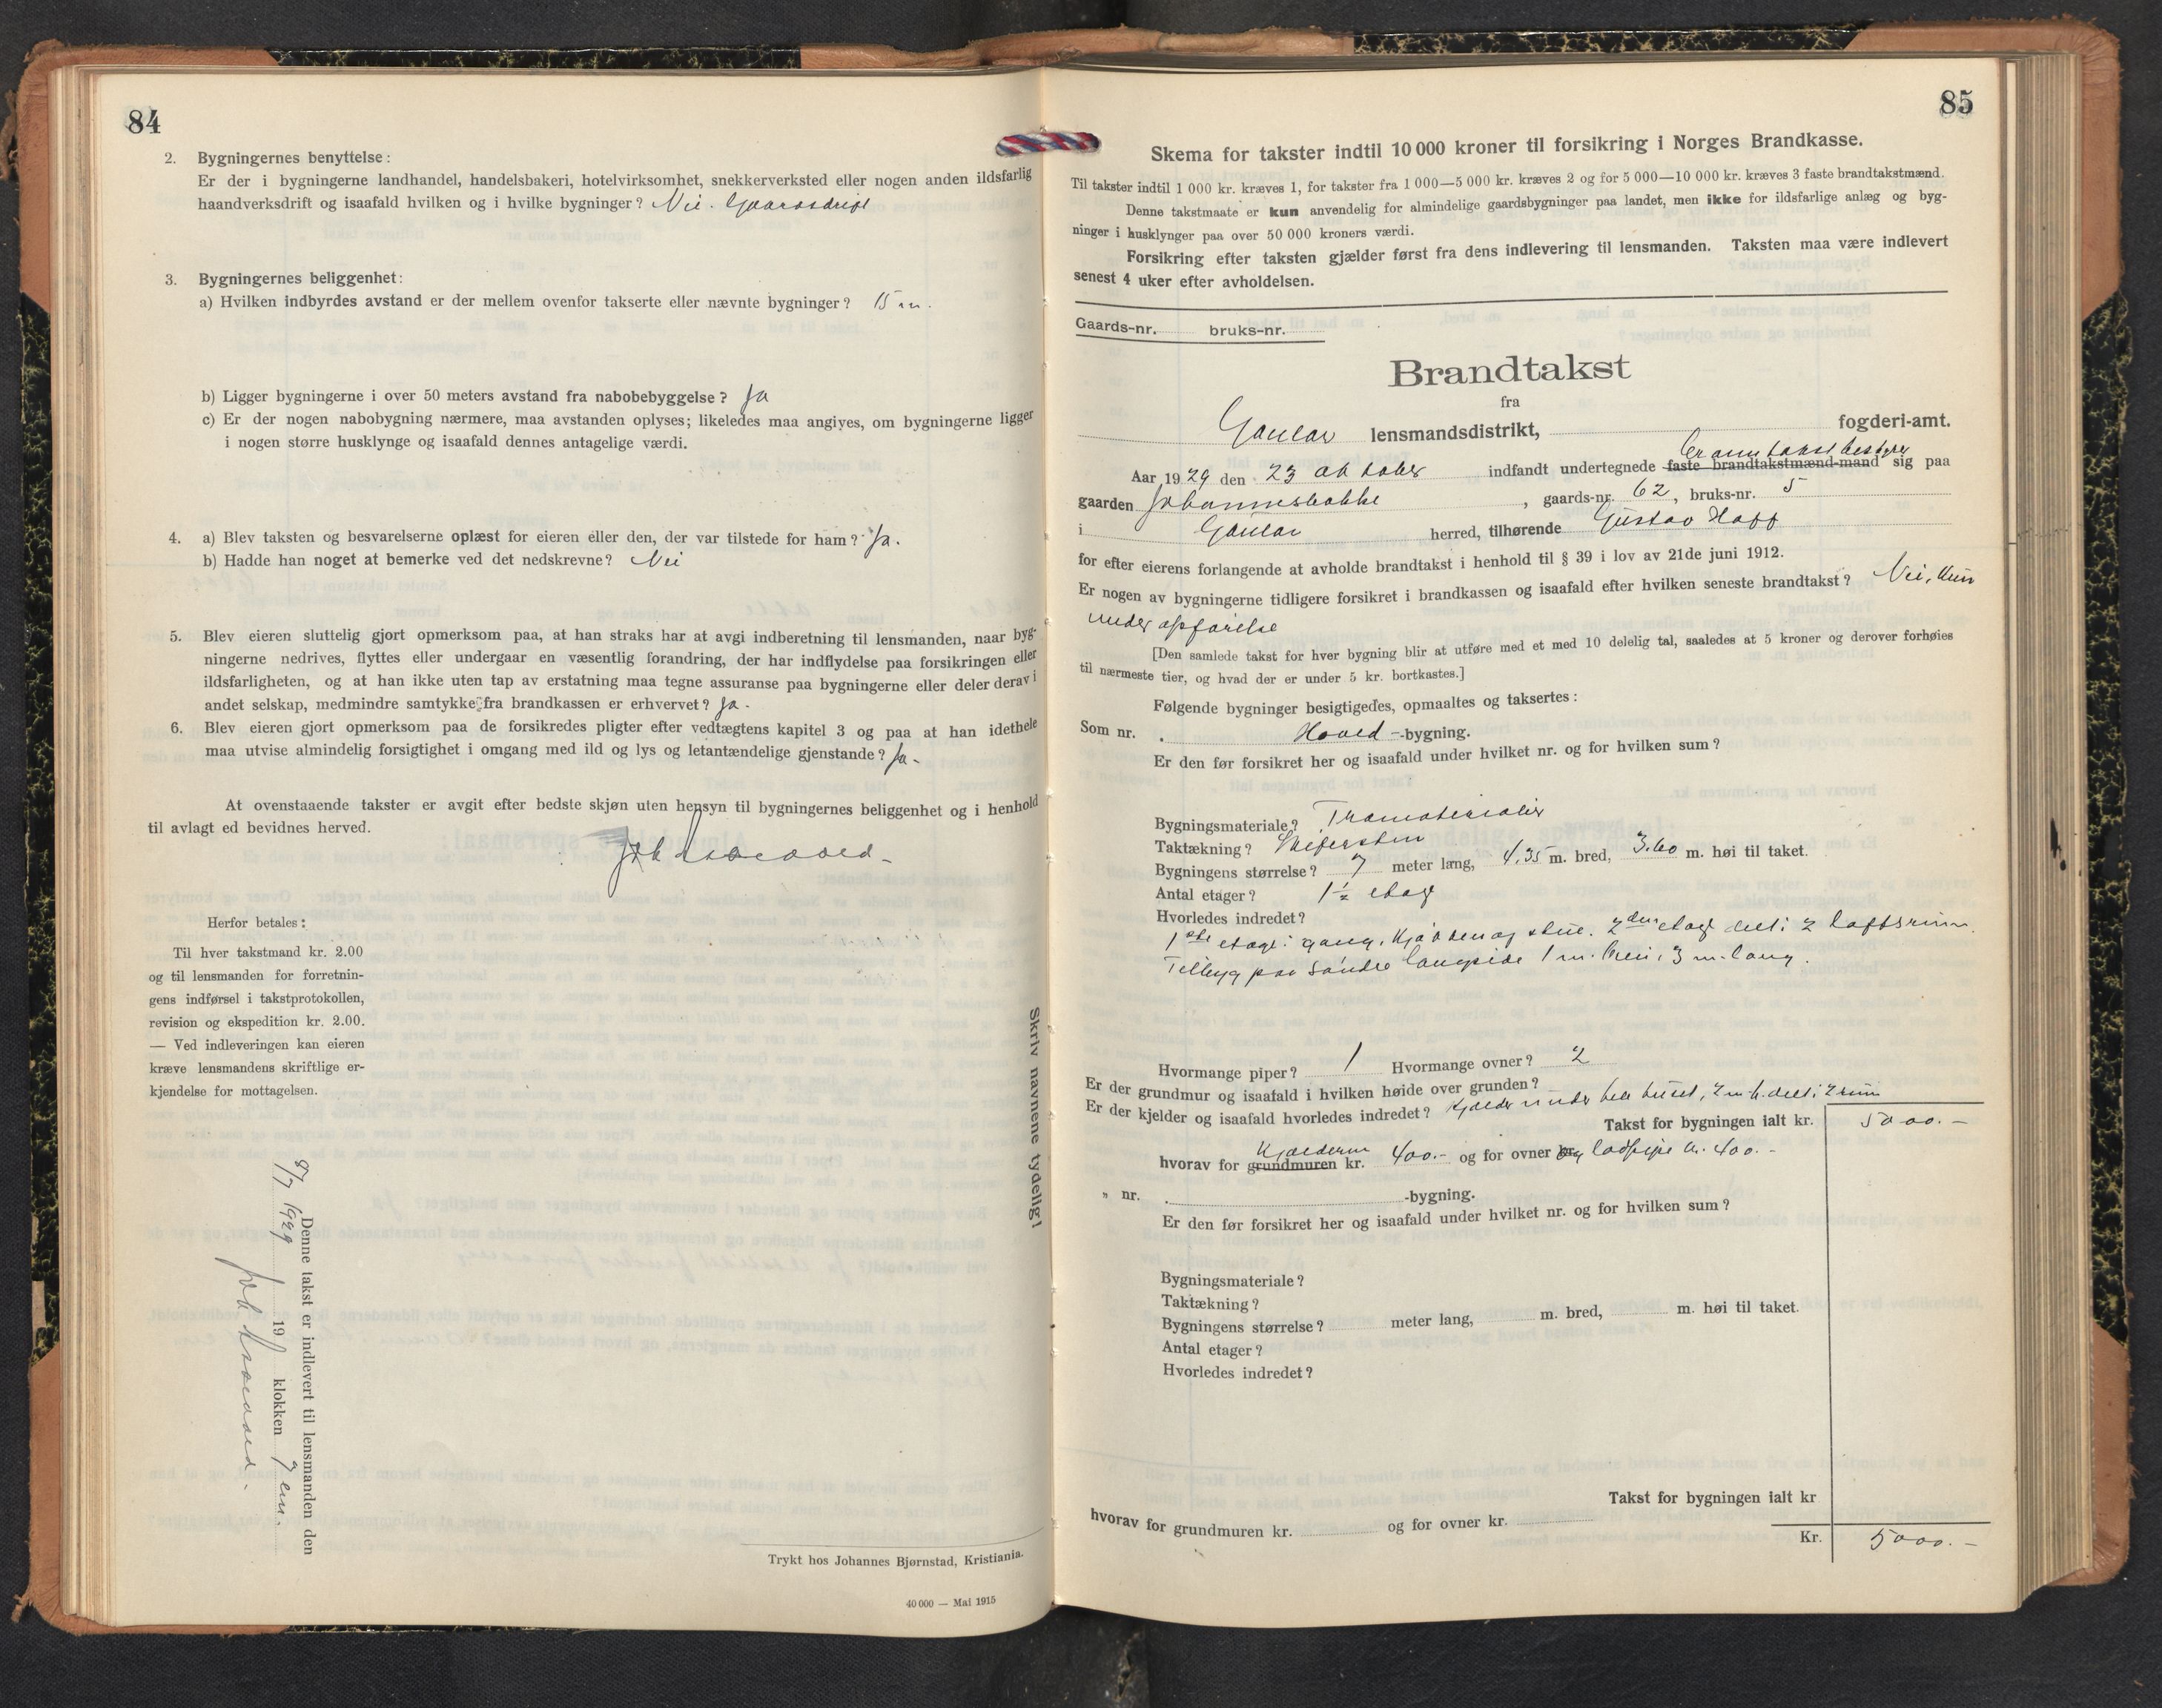 84
2. Bygningernes benyttelse:
Er der i bygningerne landhandel, handelsbakeri, hotelvirksomhet, snekkerverksted eller nogen anden ildsfarlig
haandverksdrift og isaafald hvilken og i hvilke bygninger? Nei. Gaardsdrift
3. Bygningernes beliggenhet:
a) Hvilken indbyrdes avstand er der mellem ovenfor takserte eller nævnte bygninger? 15 m.
b) Ligger bygningerne i over 50 meters avstand fra nabobebyggelse? Ja
c) Er der nogen nabobygning nærmere, maa avstanden oplyses; likeledes maa angives, om bygningerne ligger
i nogen større husklynge og isaafald dennes antagelige værdi.
4. a) Blev taksten og besvarelserne oplæst for eieren eller den, der var tilstede for ham? Ja.
b) Hadde han noget at bemerke ved det nedskrevne? Nei
5. Blev eieren sluttelig gjort opmerksom paa, at han straks har at avgi indberetning til lensmanden, naar byg-
ningerne nedrives, flyttes eller undergaar en væsentlig forandring, der har indflydelse paa forsikringen eller
ildsfarligheten, og at han ikke uten tap av erstatning maa tegne assuranse paa bygningerne eller deler derav i
andet selskap, medmindre samtykke fra brandkassen er erhvervet? Ja.
6. Blev eieren gjort opmerksom paa de forsikredes pligter efter vedtægtens kapitel 3 og paa at han idethele
maa utvise almindelig forsigtighet i omgang med ild og lys og letantændelige gjenstande? Ja.
At ovenstaaende takster er avgit efter bedste skjøn uten hensyn til bygningernes beliggenhet og i henhold
til avlagt ed bevidnes herved.
Herfor betales:
Til hver takstmand kr. 2.00
og til lensmanden for forretnin-
gens indførsel i takstprotokollen,
revision og ekspedition kr. 2.00.
— Ved indleveringen kan eieren
kræve lensmandens skriftlige er-
kjendelse for mottagelsen.
Denne takst er indlevert til lensmanden den
9/7 1929 19 klokken 7 em.
Skriv navnene tydelig!
Trykt hos Johannes Bjørnstad, Kristiania.
40 000 — Mai 1915
85
Skema for takster indtil 10 000 kroner til forsikring i Norges Brandkasse.
Til takster indtil 1 000 kr. kræves 1, for takster fra 1 000—5 000 kr. kræves 2 og for 5 000—10 000 kr. kræves 3 faste brandtakstmænd.
Denne takstmaate er kun anvendelig for almindelige gaardsbygninger paa landet, men ikke for ildsfarlige anlæg og byg-
ninger i husklynger paa over 50 000 kroners værdi.
Forsikring efter taksten gjælder først fra dens indlevering til lensmanden. Taksten maa være indlevert
senest 4 uker efter avholdelsen.
Gaards-nr. bruks-nr.
Brandtakst
fra
Gaular lensmandsdistrikt, fogderi-amt.
Branntakstbestyrer
Aar 1929 den 23 oktober indfandt undertegnede faste brandtakstmænd-mand sig paa
gaarden Johannesbakke, gaards-nr. 62, bruks-nr. 5
i Gaular herred, tilhørende Gustav Hoff
for efter eierens forlangende at avholde brandtakst i henhold til § 39 i lov av 21de juni 1912.
Er nogen av bygningerne tidligere forsikret i brandkassen og isaafald efter hvilken seneste brandtakst? Nei, kun
under opførelse
[Den samlede takst for hver bygning blir at utføre med et med 10 delelig tal, saaledes at 5 kroner og derover forhøies
til nærmeste tier, og hvad der er under 5 kr. bortkastes.]
Følgende bygninger besigtigedes, opmaaltes og taksertes:
Som nr. . Hoved-bygning.
Er den før forsikret her og isaafald under hvilket nr. og for hvilken sum?
Bygningsmateriale? Træmaterialer
Taktækning? Skifersten
Bygningens størrelse? 7 meter lang, 4.35 m. bred, 3.60 m. høi til taket.
Antal etager? 1½ etage
Hvorledes indredet?
1ste etage: gang, kjøkken og stue. 2den etage delt i 2 loftsrum.
Tilbygg paa søndre langside 1 m. brei, 3 m. lang.
Hvormange piper? 1 Hvormange ovner? 2
Er der grundmur og isaafald i hvilken høide over grunden?
Er der kjelder og isaafald hvorledes indredet? Kjælder under hele huset, 2 m h. delt i 2 rum
Takst for bygningen ialt kr. 5000.-
Kjælderen
hvorav for grundmuren kr. 400.- og for ovner kr. og ladpipe kr. 400.-
„ nr. . -bygning.
Er den før forsikret her og isaafald under hvilket nr. og for hvilken sum?
Bygningsmateriale?
Taktækning?
Bygningens størrelse? meter lang, m. bred, m. høi til taket.
Antal etager?
Hvorledes indredet?
Takst for bygningen ialt kr
hvorav for grundmuren kr. og for ovner kr.
Kr. 5000.-